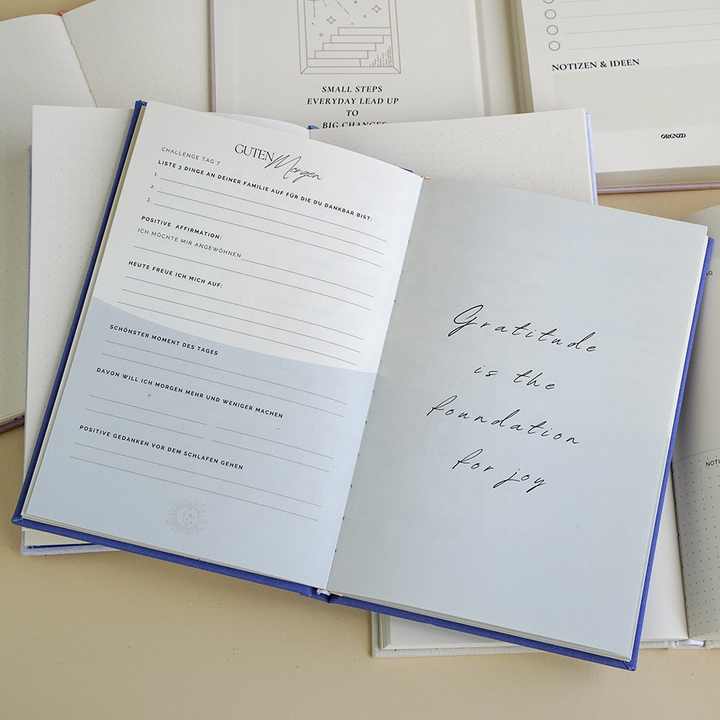 SMALL STEPS
EVERYDAY LEAD UP
TO
BIG CHANGES
NOTIZEN & IDEEN
ORGNZD
CHALLENGE TAG 7
GUTEN Morgen
LISTE 3 DINGE AN DEINER FAMILIE AUF FÜR DIE DU DANKBAR BIST:
1.
2.
3.
POSITIVE AFFIRMATION:
ICH MÖCHTE MIR ANGEWÖHNEN
HEUTE FREUE ICH MICH AUF:
SCHÖNSTER MOMENT DES TAGES
DAVON WILL ICH MORGEN MEHR UND WENIGER MACHEN
POSITIVE GEDANKEN VOR DEM SCHLAFEN GEHEN
Gratitude
is the
foundation
for joy